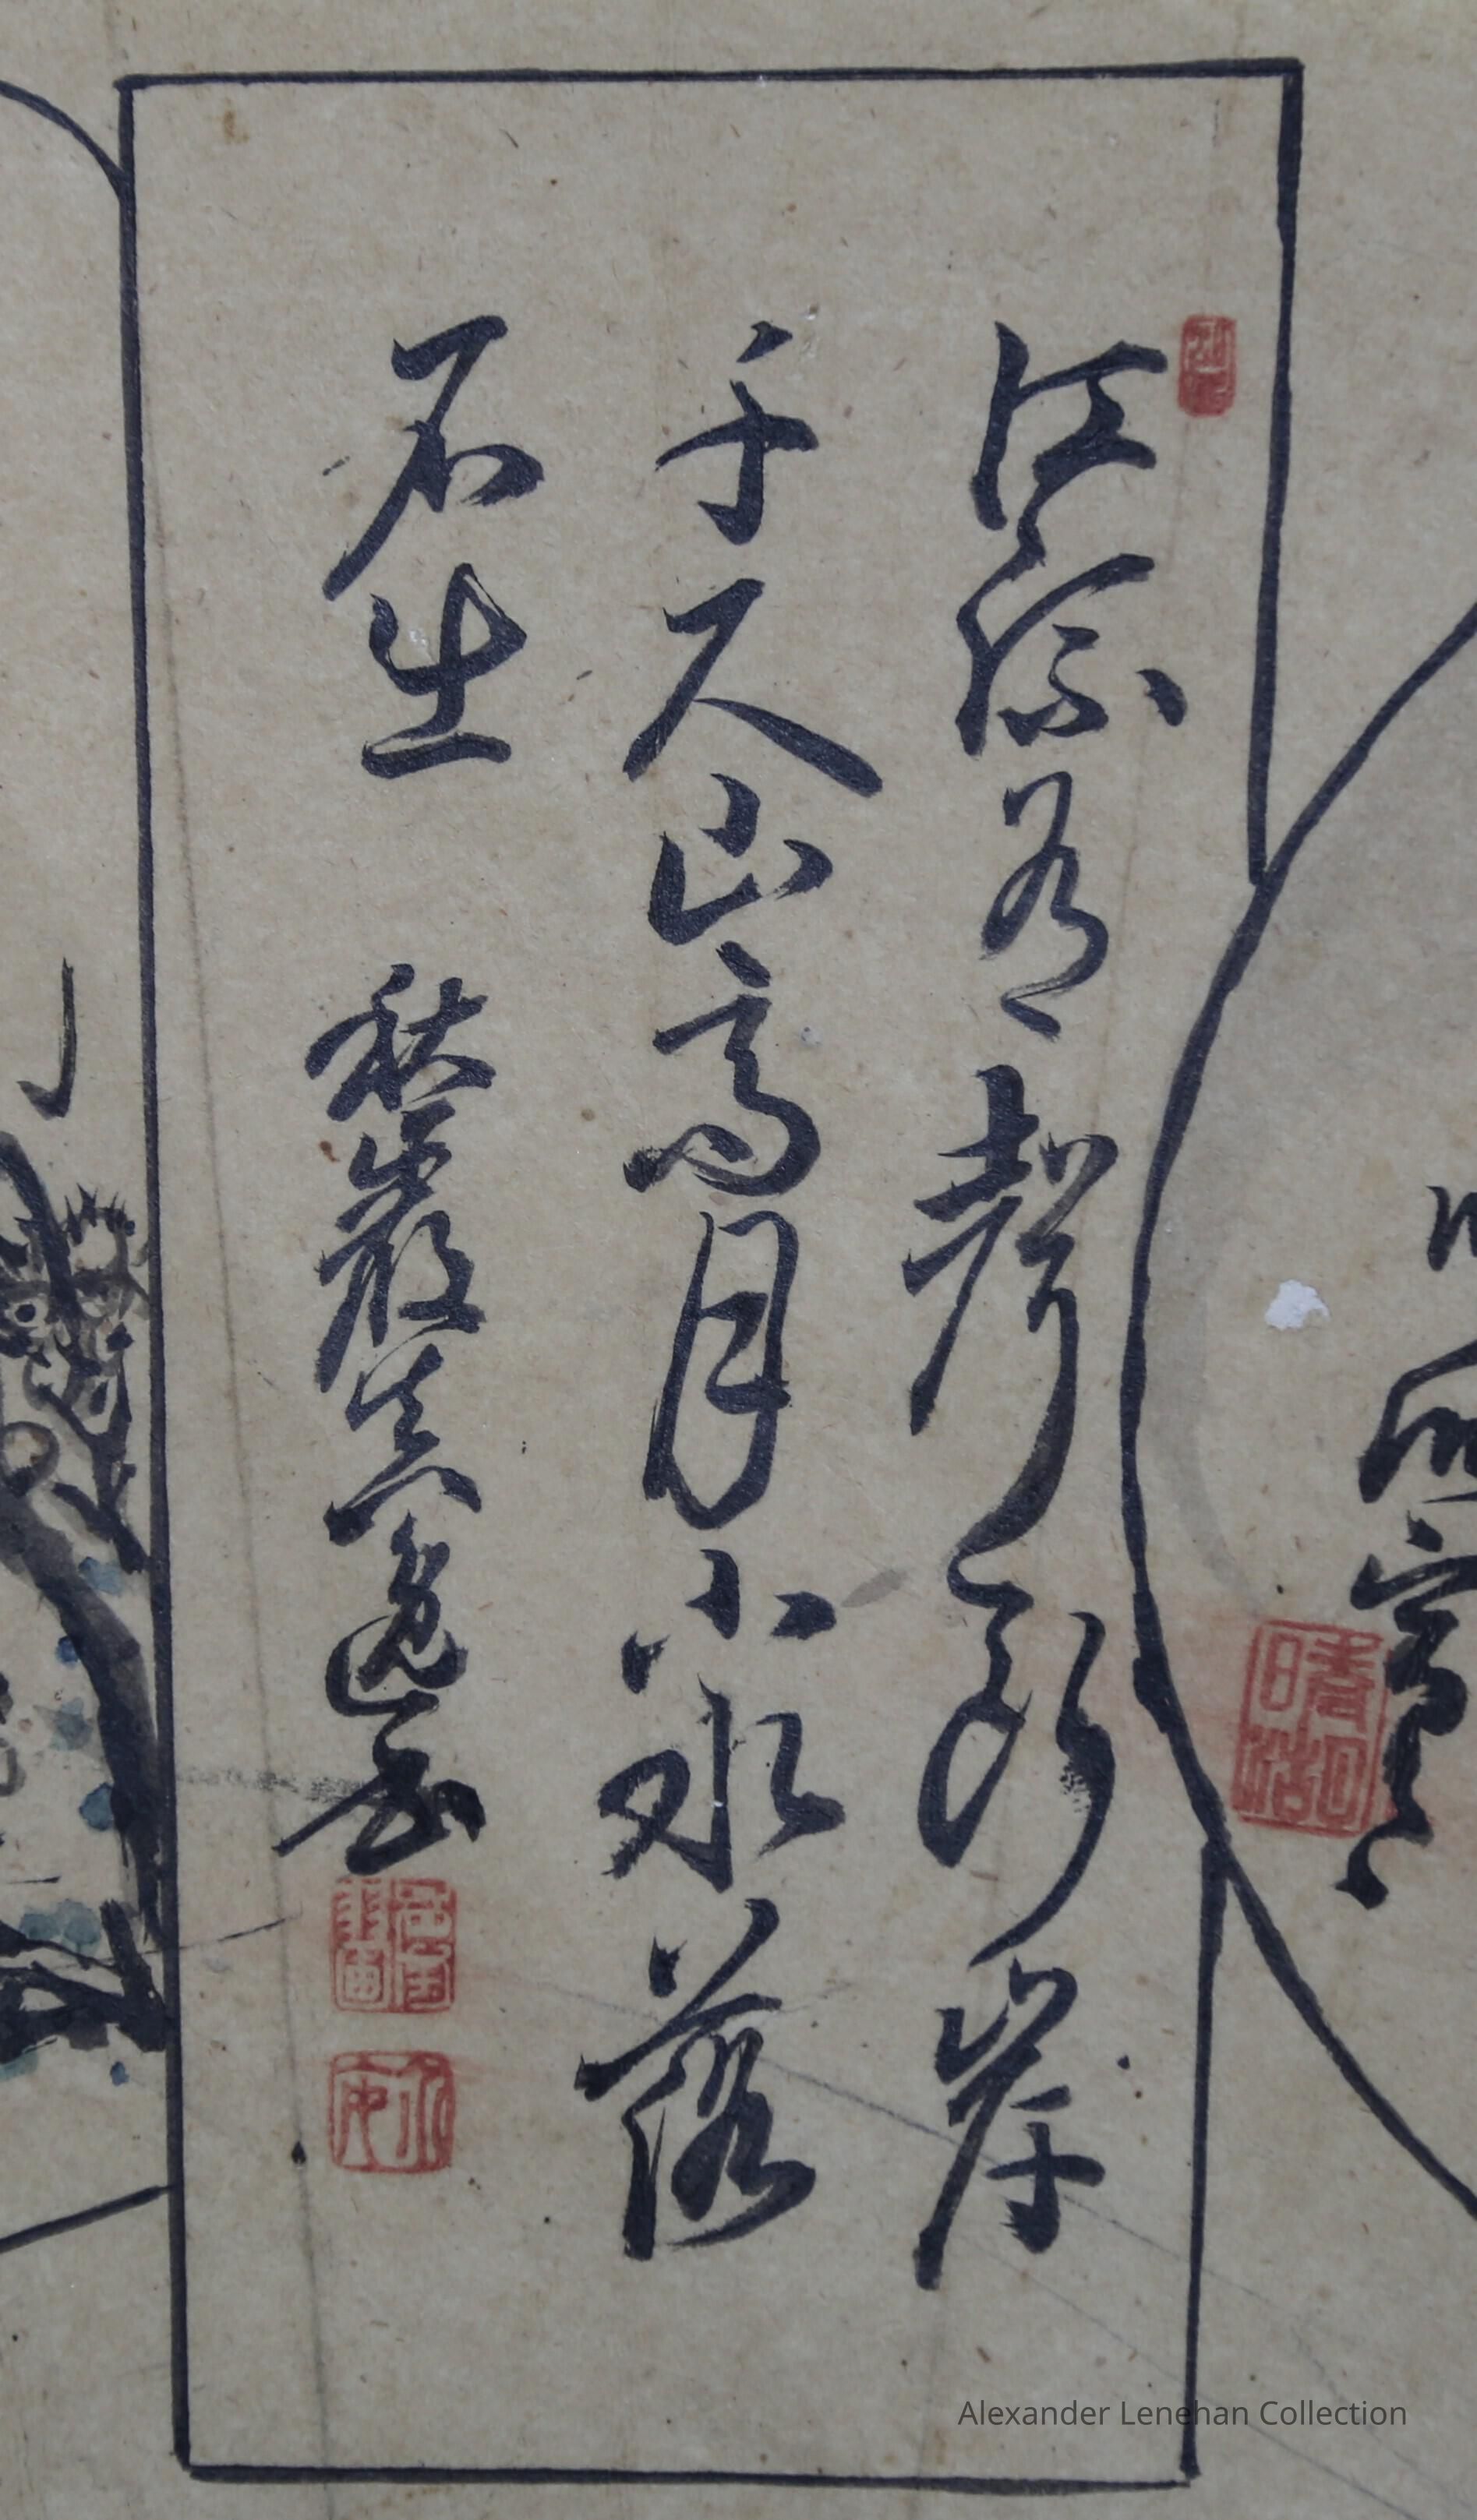 江流有聲斷岸
千尺山高月小水落
石生 秋巖
書
晴湖
Alexander Lenehan Collection